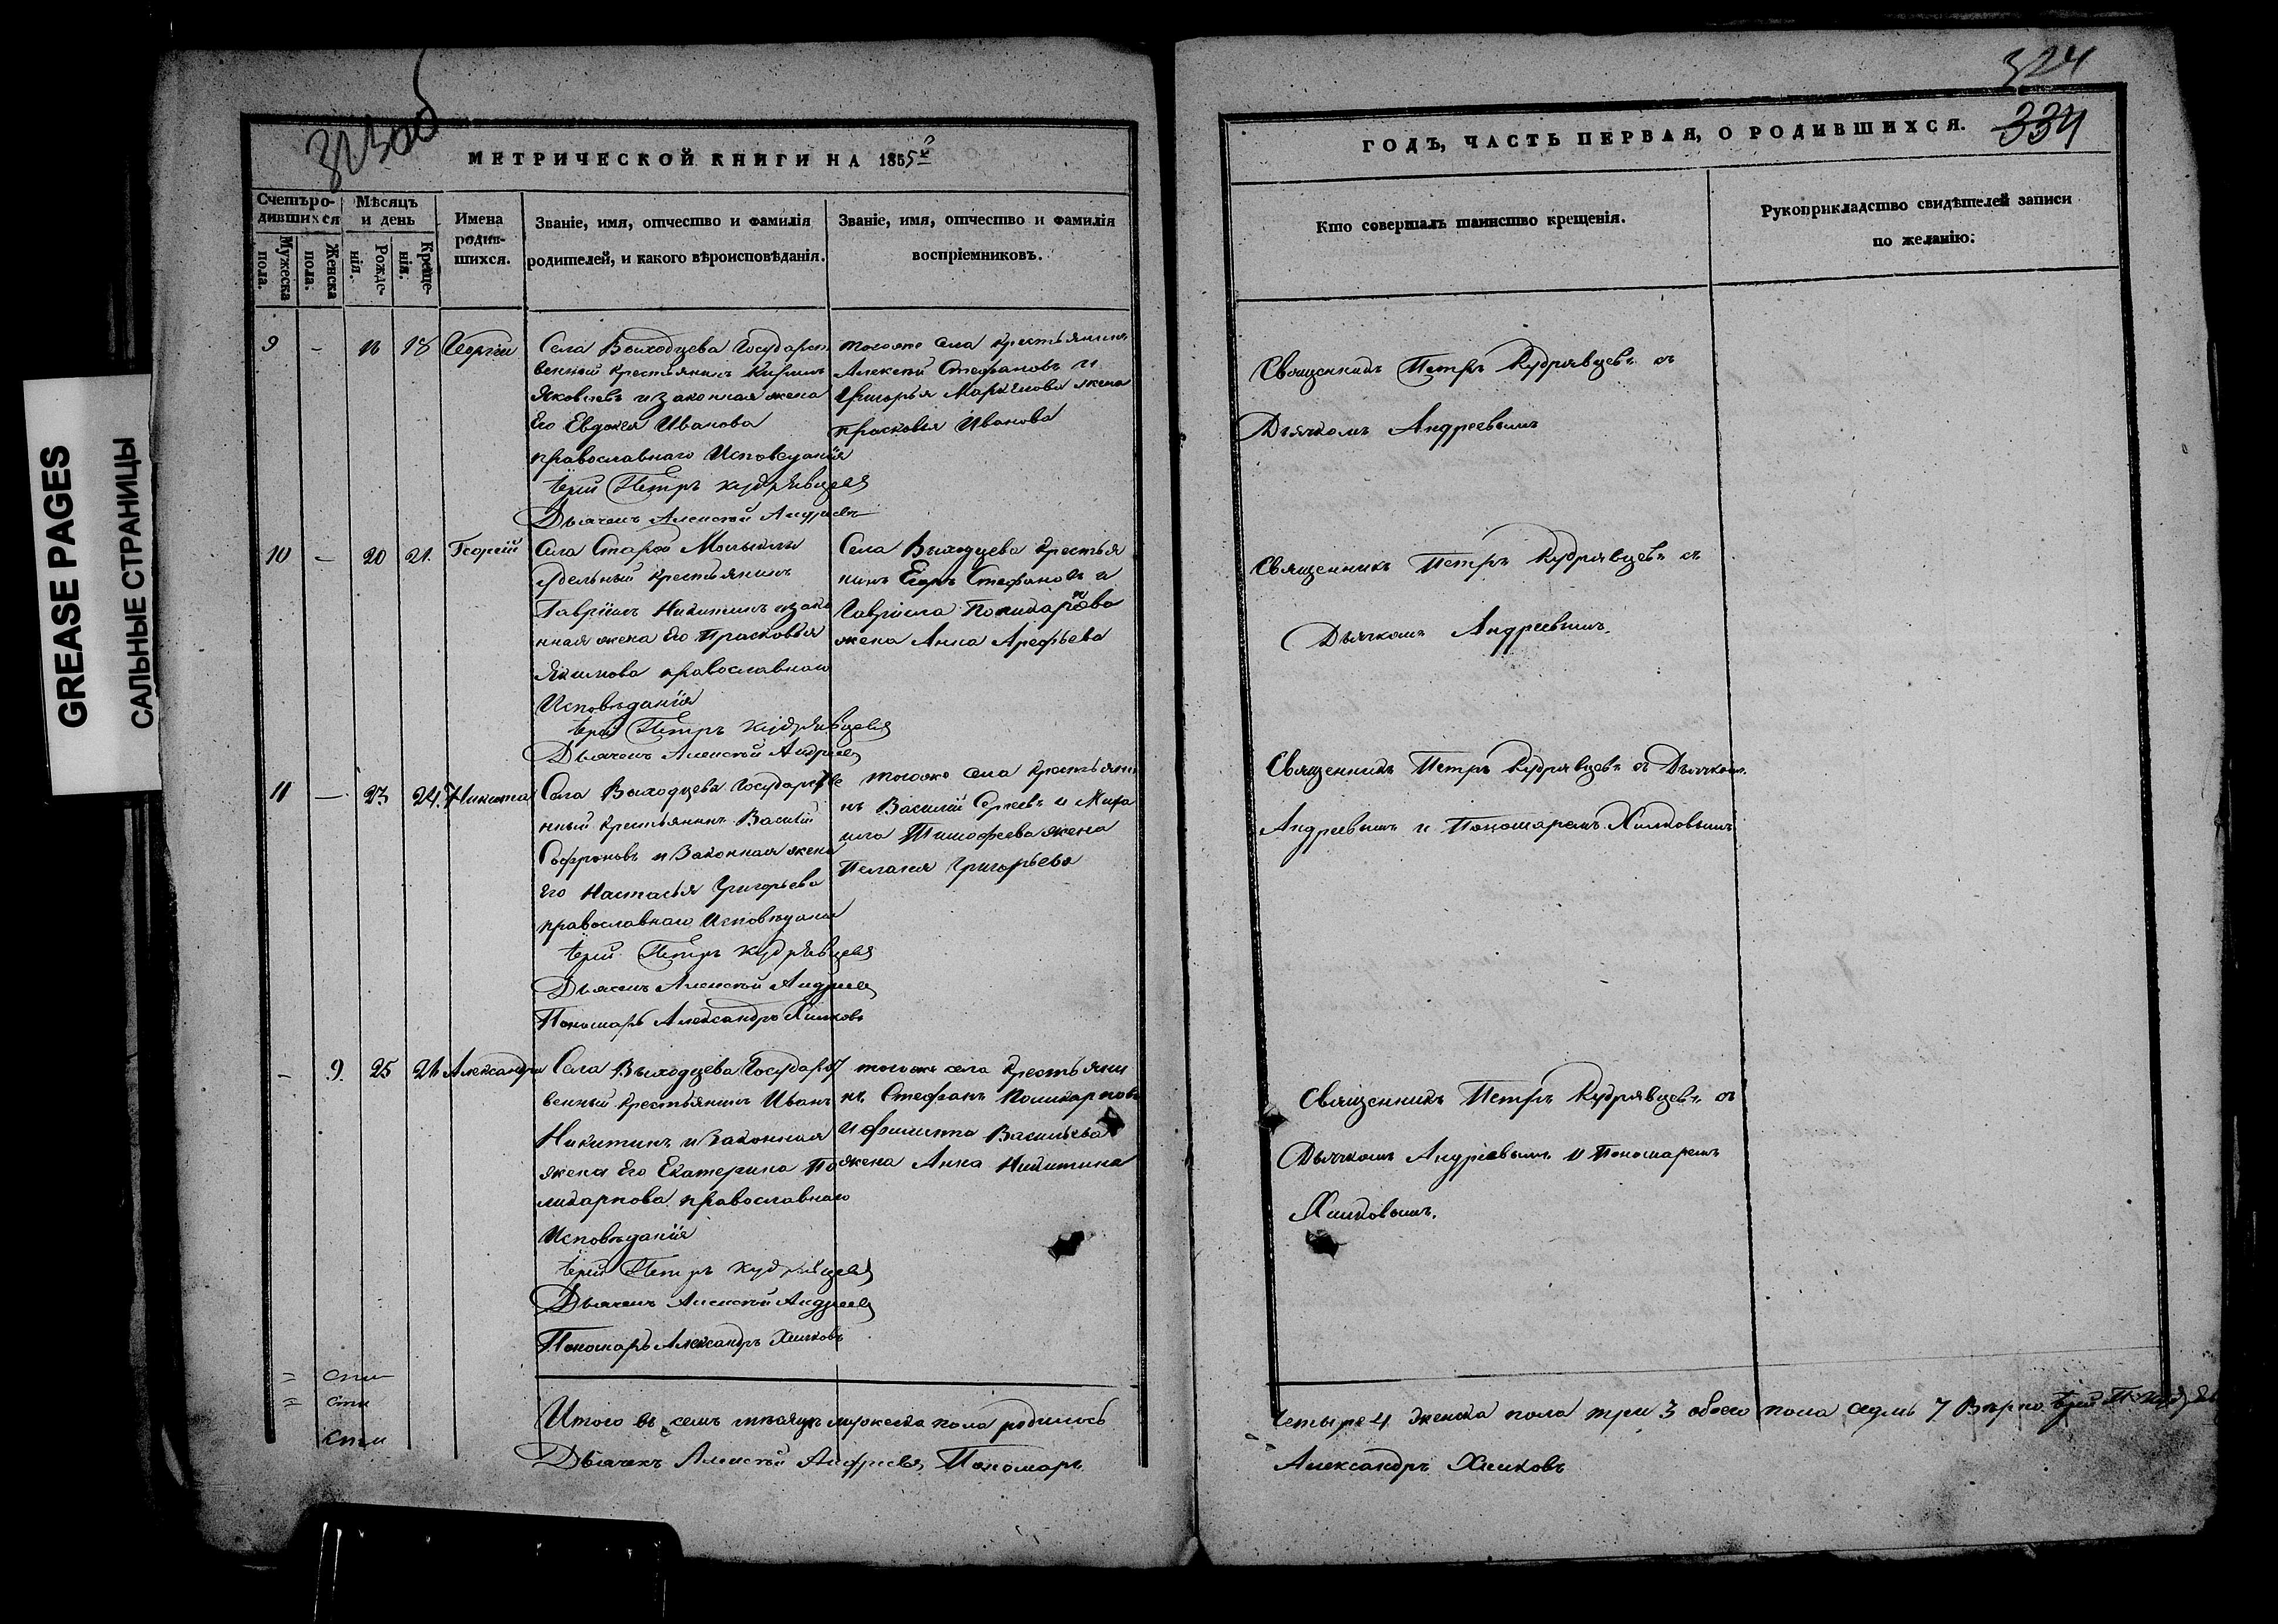 GREASE PAGES
САЛЬНЫЕ СТРАНИЦЫ
МЕТРИЧЕСКОЙ КНИГИ НА 1855й
Счетъ ро-
дившихся
Мужеска пола.
Женска пола.
Мѣсяцъ
и день
Рожде-
нія.
Креще-
нія.
Имена
родив-
шихся.
Званіе, имя, отчество и фамилія
родителей, и какого вѣроисповѣданія.
Званіе, имя, отчество и фамилія
воспріемниковъ.
9 - 16 18 Георгій
Села Выходцева Государст
венный крестьянинъ
Яковлевъ и законная жена
Его Евдокея Иванова
православнаго Исповеданія
Іерей Петръ Кудрявцевъ
Дьячекъ Алексѣй Андреевъ
тогоже села крестьянинъ
Алексѣй Стефановъ и
Григорья жена
Прасковья Иванова
10 - 20 21. Георгій
Села Старой
удельный крестьянинъ
Гаврiилъ Никитинъ и зако
нная жена Его Прасковья
Якимова православнаго
Исповѣданія
Іерей Петръ Кудрявцевъ
Дьячекъ Алексѣй Андреевъ
Села Выходцева крестья
нинъ Егоръ Стефановъ и
Гавріила Поликарпова
жена Анна Арефьева
11 - 23 24. Никита
Села Выходцева Государстве
нный крестьянинъ Василій
Софроновъ и Законная жена
Его Настасья Григорьева
православнаго Исповѣданія
Іерей Петръ Кудрявцевъ
Дьячекъ Алексѣй Андреевъ
Пономарь Александръ Хилковъ
тогоже села крестьяни
нъ Василій Сергеевъ и Миха
ила Тимофеева жена
Пелагея Григорьева
- 9. 25 26 Александра
Села Выходцева Государст
венный крестьянинъ Иванъ
Никитинъ и Законная
жена Его Екатерина По
ликарпова православнаго
Исповѣданія
Іерей Петръ Кудрявцевъ
Дьячекъ Алексѣй Андреевъ
Пономарь Александръ Хилковъ
тогожъ села крестьяни
нъ Стефанъ Поликарповъ
и Филиппа Васильева
жена Анна Никитина
Итого въ семъ мѣсяцѣ мужеска пола родилось
Дьячекъ Алексѣй Андреевъ Пономарь
324
334
ГОДЪ, ЧАСТЬ ПЕРВАЯ, О РОДИВШИХСЯ.
Кто совершалъ таинство крещенія.
Рукоприкладство свидѣтелей записи
по желанію.
Священникъ Петръ Кудрявцевъ съ
Дьячкомъ Андреевымъ
Священникъ Петръ Кудрявцевъ съ
Дьячкомъ Андреевымъ.
Священникъ Петръ Кудрявцевъ съ Дьячкомъ
Андреевымъ и Пономаремъ Хилковымъ
Священникъ Петръ Кудрявцевъ съ
Дьячкомъ Андреевымъ и Пономаремъ
Хилковымъ.
Четыре 4 женска пола три 3 обоего пола седмь 7 Вѣрно Іерей П. Кудряв
Александръ Хилковъ